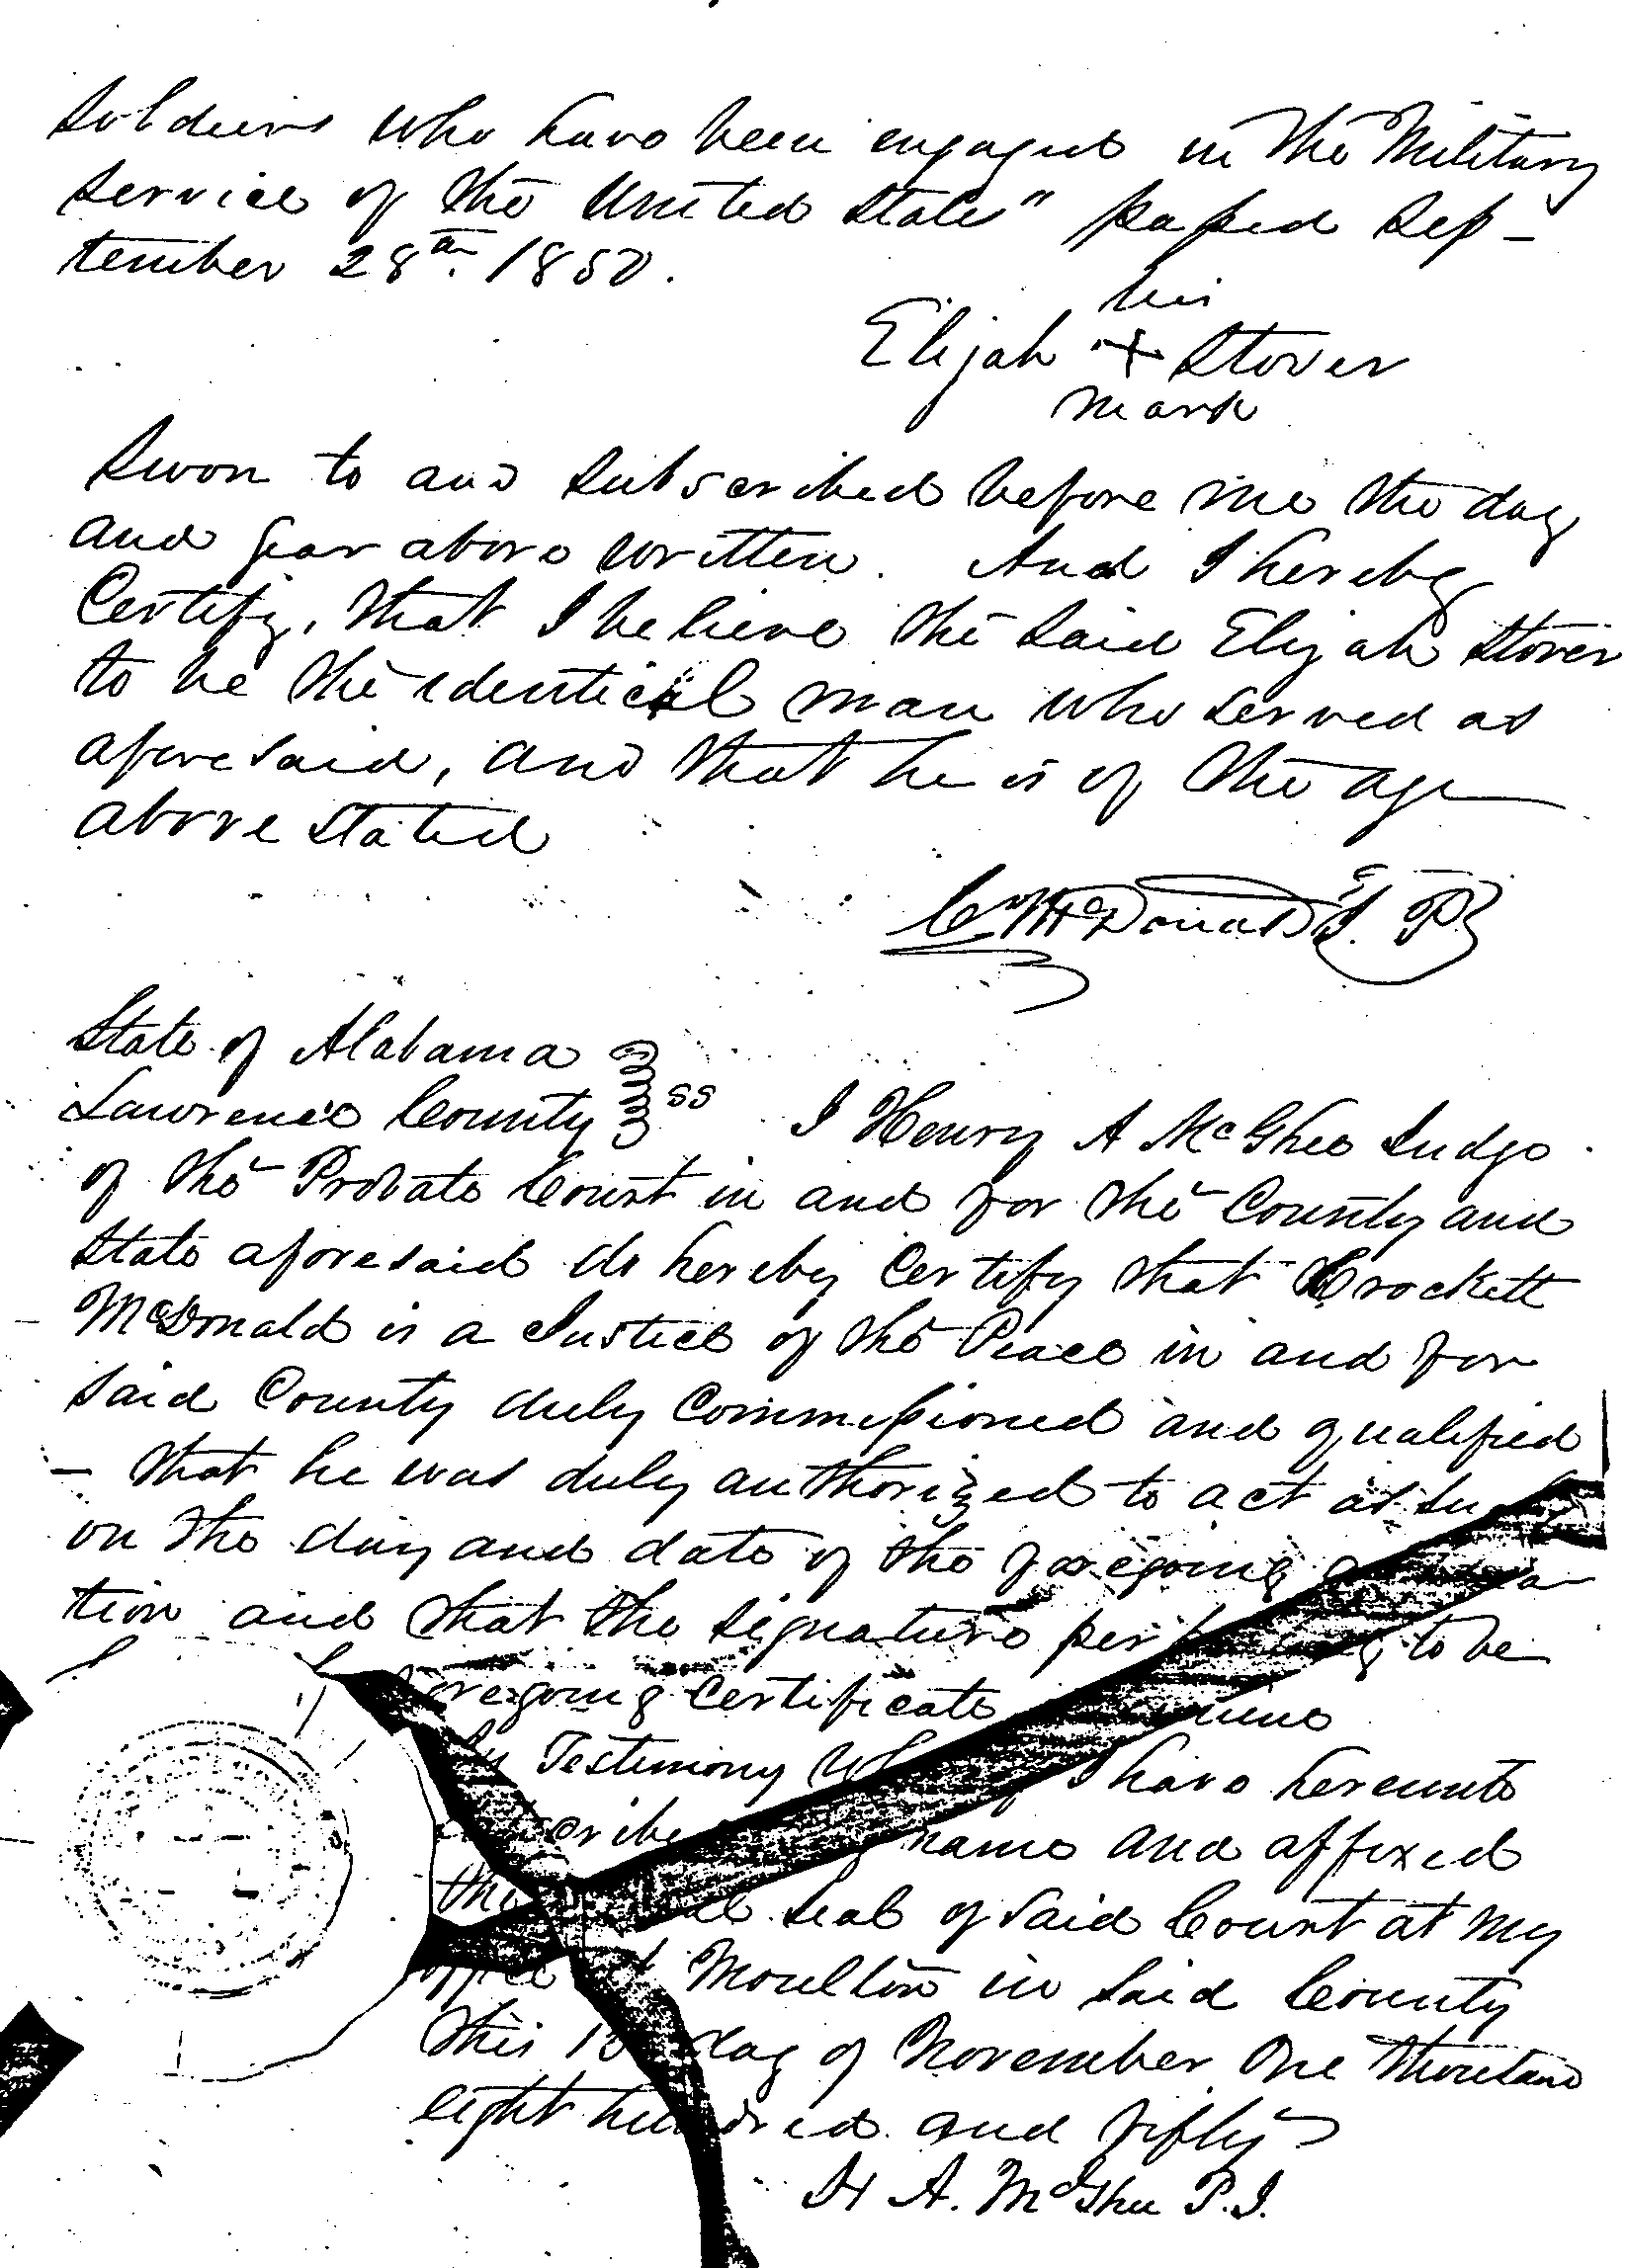 Soldiers who have been engaged in the Military
Service of the United States" passed Sep-
tember 28th. 1850.
his
Elijah + Stover
mark
Swon to and Subscribed before me the day
and year above written. And I hereby
Certify, that I believe the said Elijah Stover
to be the identical man who served as
aforesaid, and that he is of the age
above stated
C McDonald J. P.
State of Alabama
Lawrence County ss I Henry A McGhee Judge
of the Probate Court in and for the County and
State aforesaid do hereby Certify that Crockett
McDonald is a Justice of the Peace in and for
Said County duly Commissioned and qualified
- that he was duly authorized to act as su
on the day and date of the foregoing
tion and that the signature per to be
foregoing Certificate
In Testimony I have hereunto
name and affixed
the seal of said Court at my
office at Moulton in said County
this day of November One thousand
eight hundred and fifty
H A. McGhee P. J.